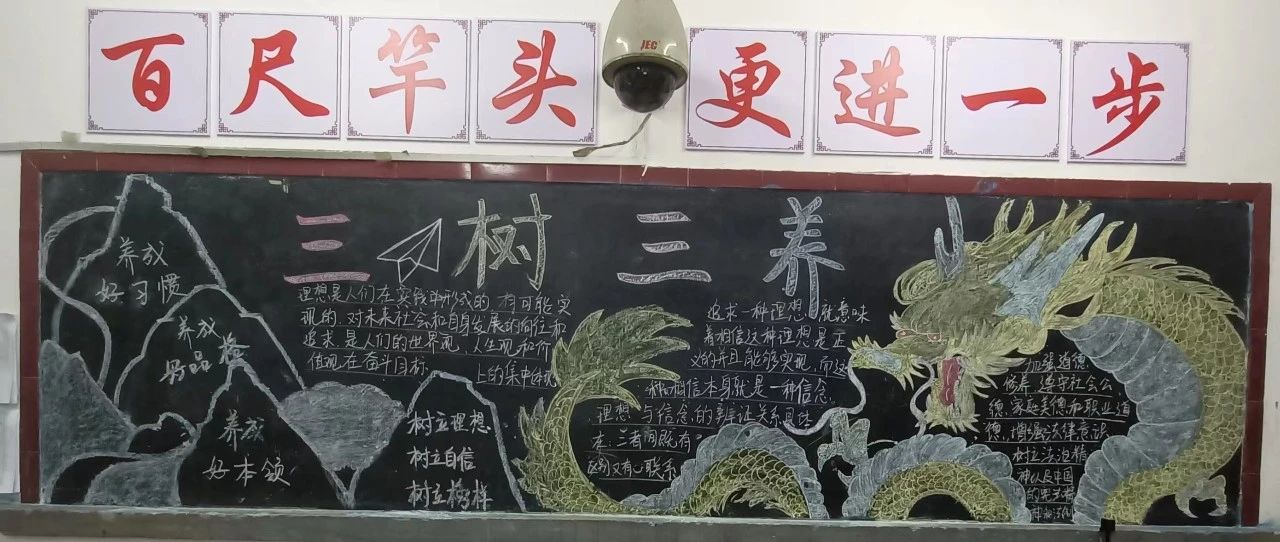 百尺竿头
JEC
更进一步
三树三养
养成
好习惯
养成
好品
养成
好本领
理想是人们在实践中形式的、有可能实
现的、对未来社会和自身发展的向往和
追求、是人们的世界观、人生观和价
值观在奋斗目标上的集中体现
树立理想
树立自信
树立榜样
追求一种理想,就意味
着相信这种理想是正
义的并且能够实现,而这
种相信本身就是一种信念,
理想与信念的辨证关系
既有
区别又有联系
加强道德
修养,遵守社会公
德、家庭美德和职业道
德,增强法律意识
树立法治精
神以及中国
的宪法精